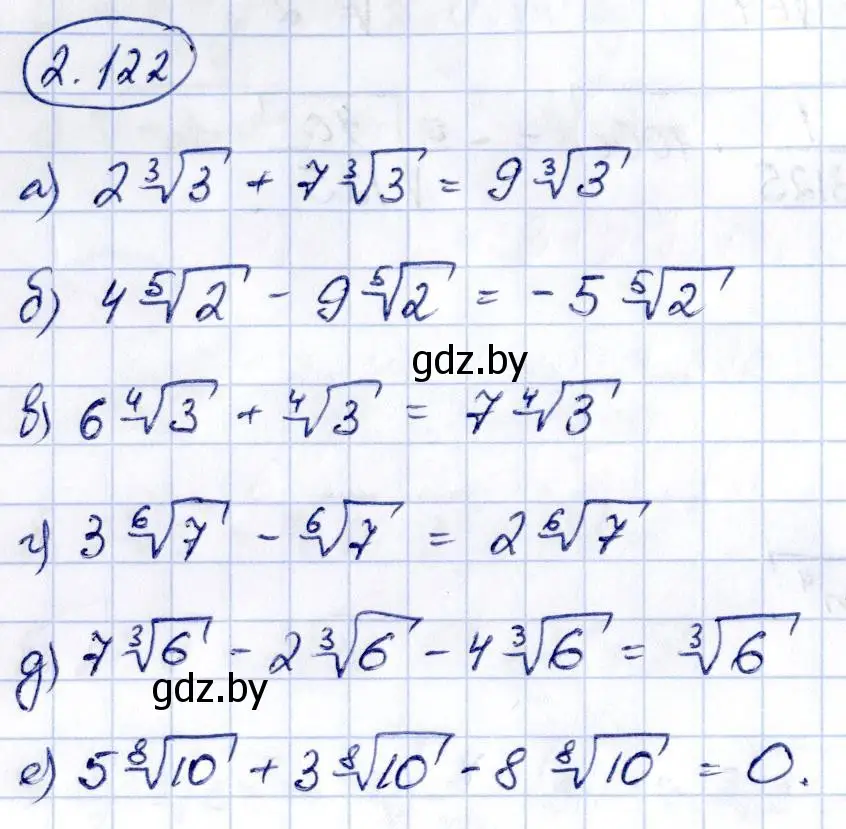 2.122
а) 2∛3 + 7∛3 = 9∛3
б) 4⁵√2 - 9⁵√2 = -5⁵√2
gdz.by
в) 6⁴√3 + ⁴√3 = 7⁴√3
г) 3⁶√7 - ⁶√7 = 2⁶√7
д) 7∛6 - 2∛6 - 4∛6 = ∛6
gdz.by
е) 5⁸√10 + 3⁸√10 - 8⁸√10 = 0.